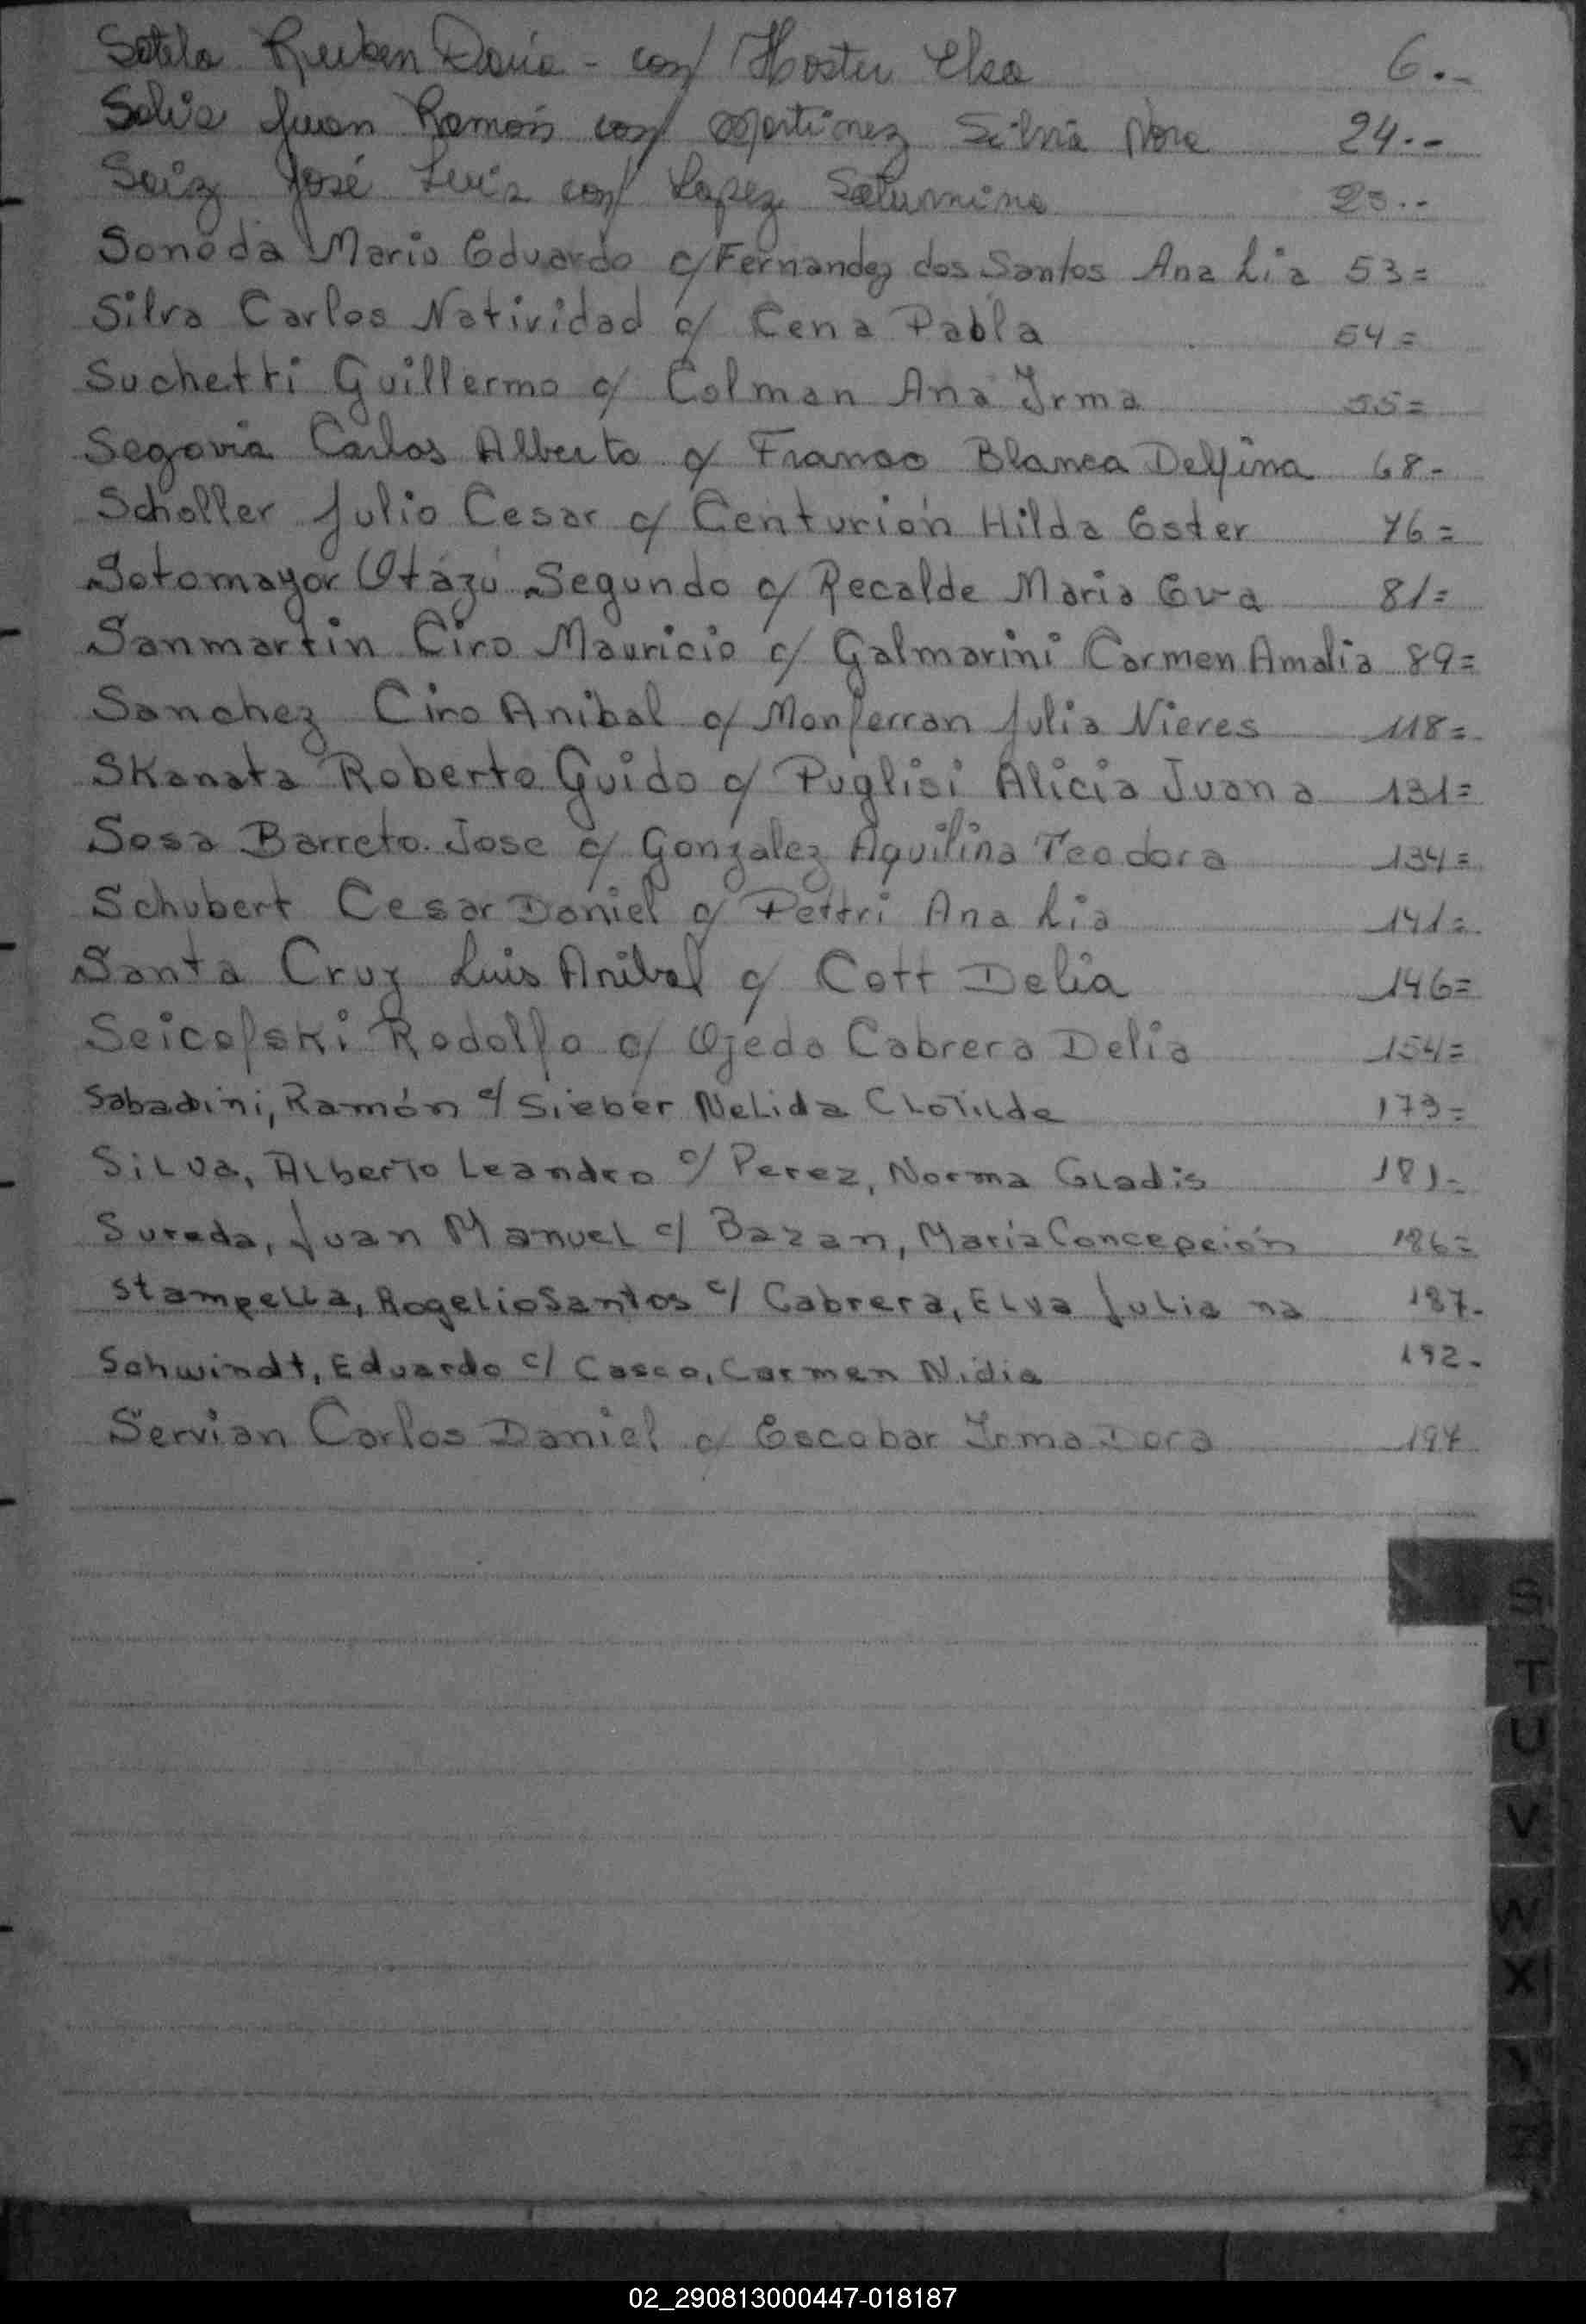 Sotelo Ruben Dario - con/ Hoster Elsa 6.-
Solis Juan Ramón con/ Martinez Silvia Nora 24.-
Saiz José Luis con/ Lopez Saturnina 25.-
Soneda Mario Eduardo c/ Fernandez dos Santos Ana Lia 53=
Silva Carlos Natividad c/ Cena Pabla 54=
Suchetti Guillermo c/ Colman Ana Irma 55=
Segovia Carlos Alberto c/ Franco Blanca Delfina 68-
Scholler Julio Cesar c/ Centurión Hilda Ester 76=
Sotomayor Otázú Segundo c/ Recalde Maria Eva 81=
Sanmartin Ciro Mauricio c/ Galmarini Carmen Amalia 89=
Sanchez Ciro Anibal c/ Monferran Julia Nieves 118=
Skanata Roberto Guido c/ Puglisi Alicia Juana 131=
Sosa Barreto Jose c/ Gonzalez Aquilina Teodora 134=
Schubert Cesar Daniel c/ Pettri Ana Lia 141=
Santa Cruz Luis Anibal c/ Cott Delia 146=
Seicofski Rodolfo c/ Ojeda Cabrera Delia 154=
Sabadini, Ramón c/ Sieber Nelida Clotilde 173=
Silva, Alberto Leandro c/ Perez, Norma Gladis 181-
Sureda, Juan Manuel c/ Bazan, María Concepción 186=
Stampella, Rogelio Santos c/ Cabrera, Elva Juliana 187-
Schwindt, Eduardo c/ Casco, Carmen Nidia 192-
Servian Carlos Daniel c/ Escobar Irma Dora 197
S
T
U
V
W
X
02_290813000447-018187